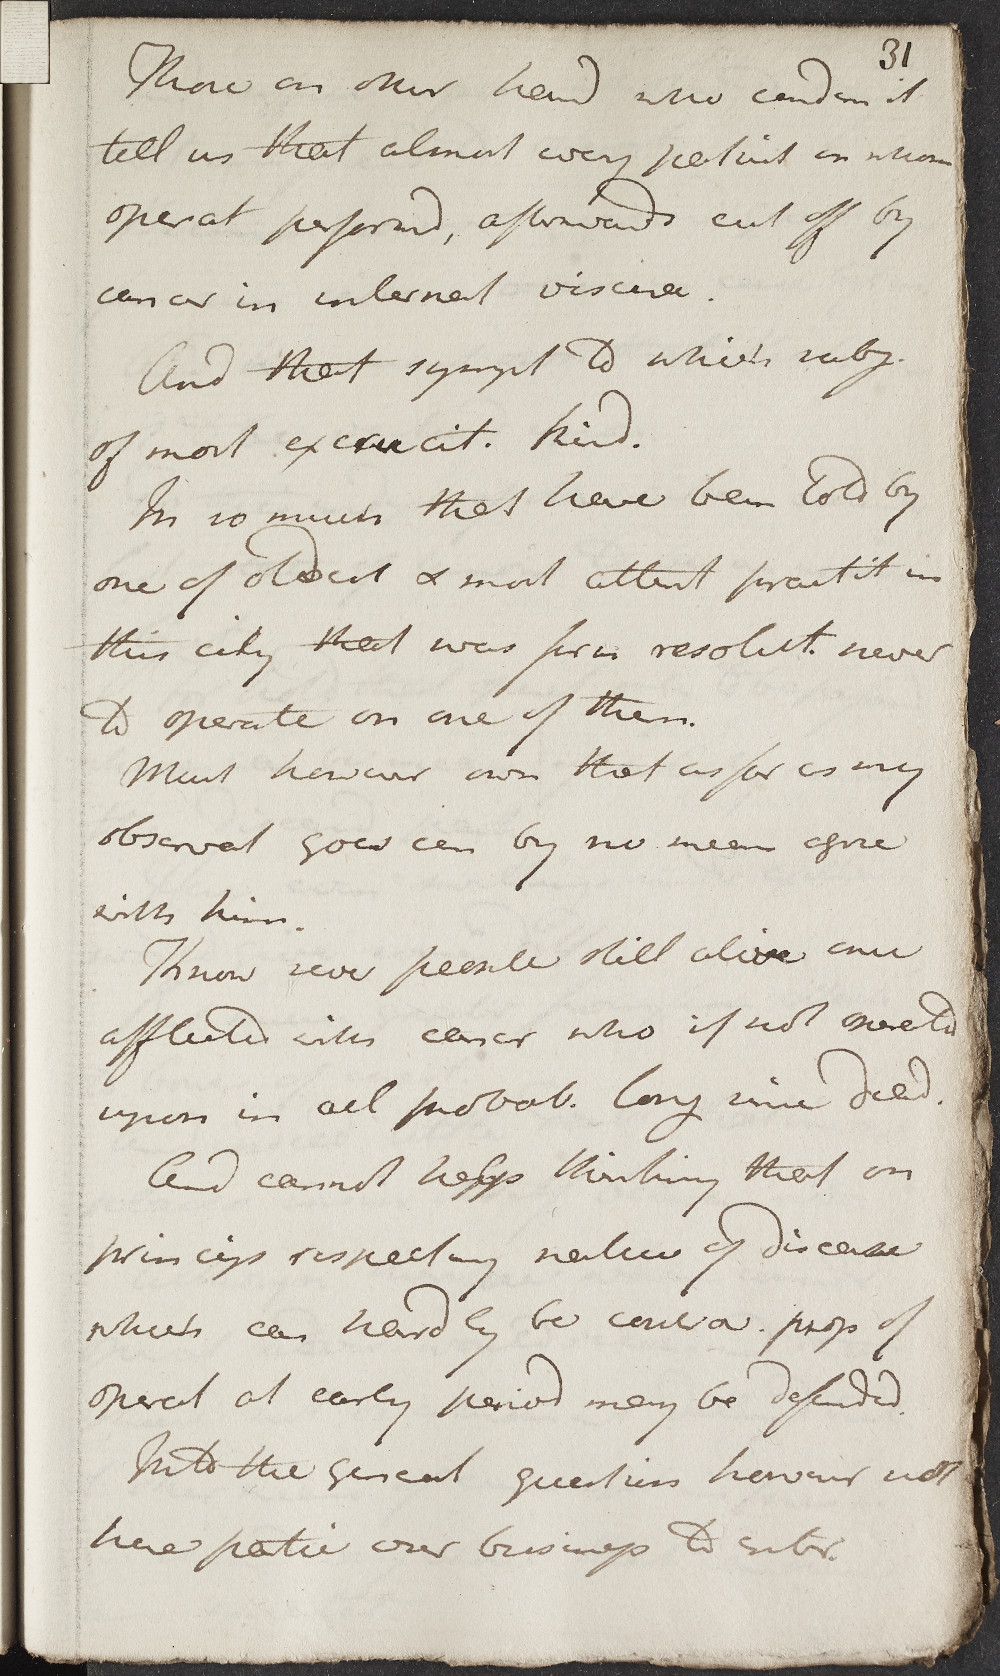 31
Those on other hand who condem it
tell us that almost every patient on whom
operat performd, afterwards cut off by
cancer in internal viscera.
And that sympt to which subj.
of most excruciat. kind.
In so much that have been told by
one of oldest & most attent practit in
this city that was firm resolut. never
to operate on one of them.
Must however own that as far as my
observat goes can by no mean agree
with him.
Know seve people still alive once
afflicted with cancer who if not operatd
upon in all probab. long since died.
And cannot help thinking that on
princips respecting nature of disease
which can hardly be controv. prop of
operat at early period may be defended.
Into the general question however not
here partic our business to enter.